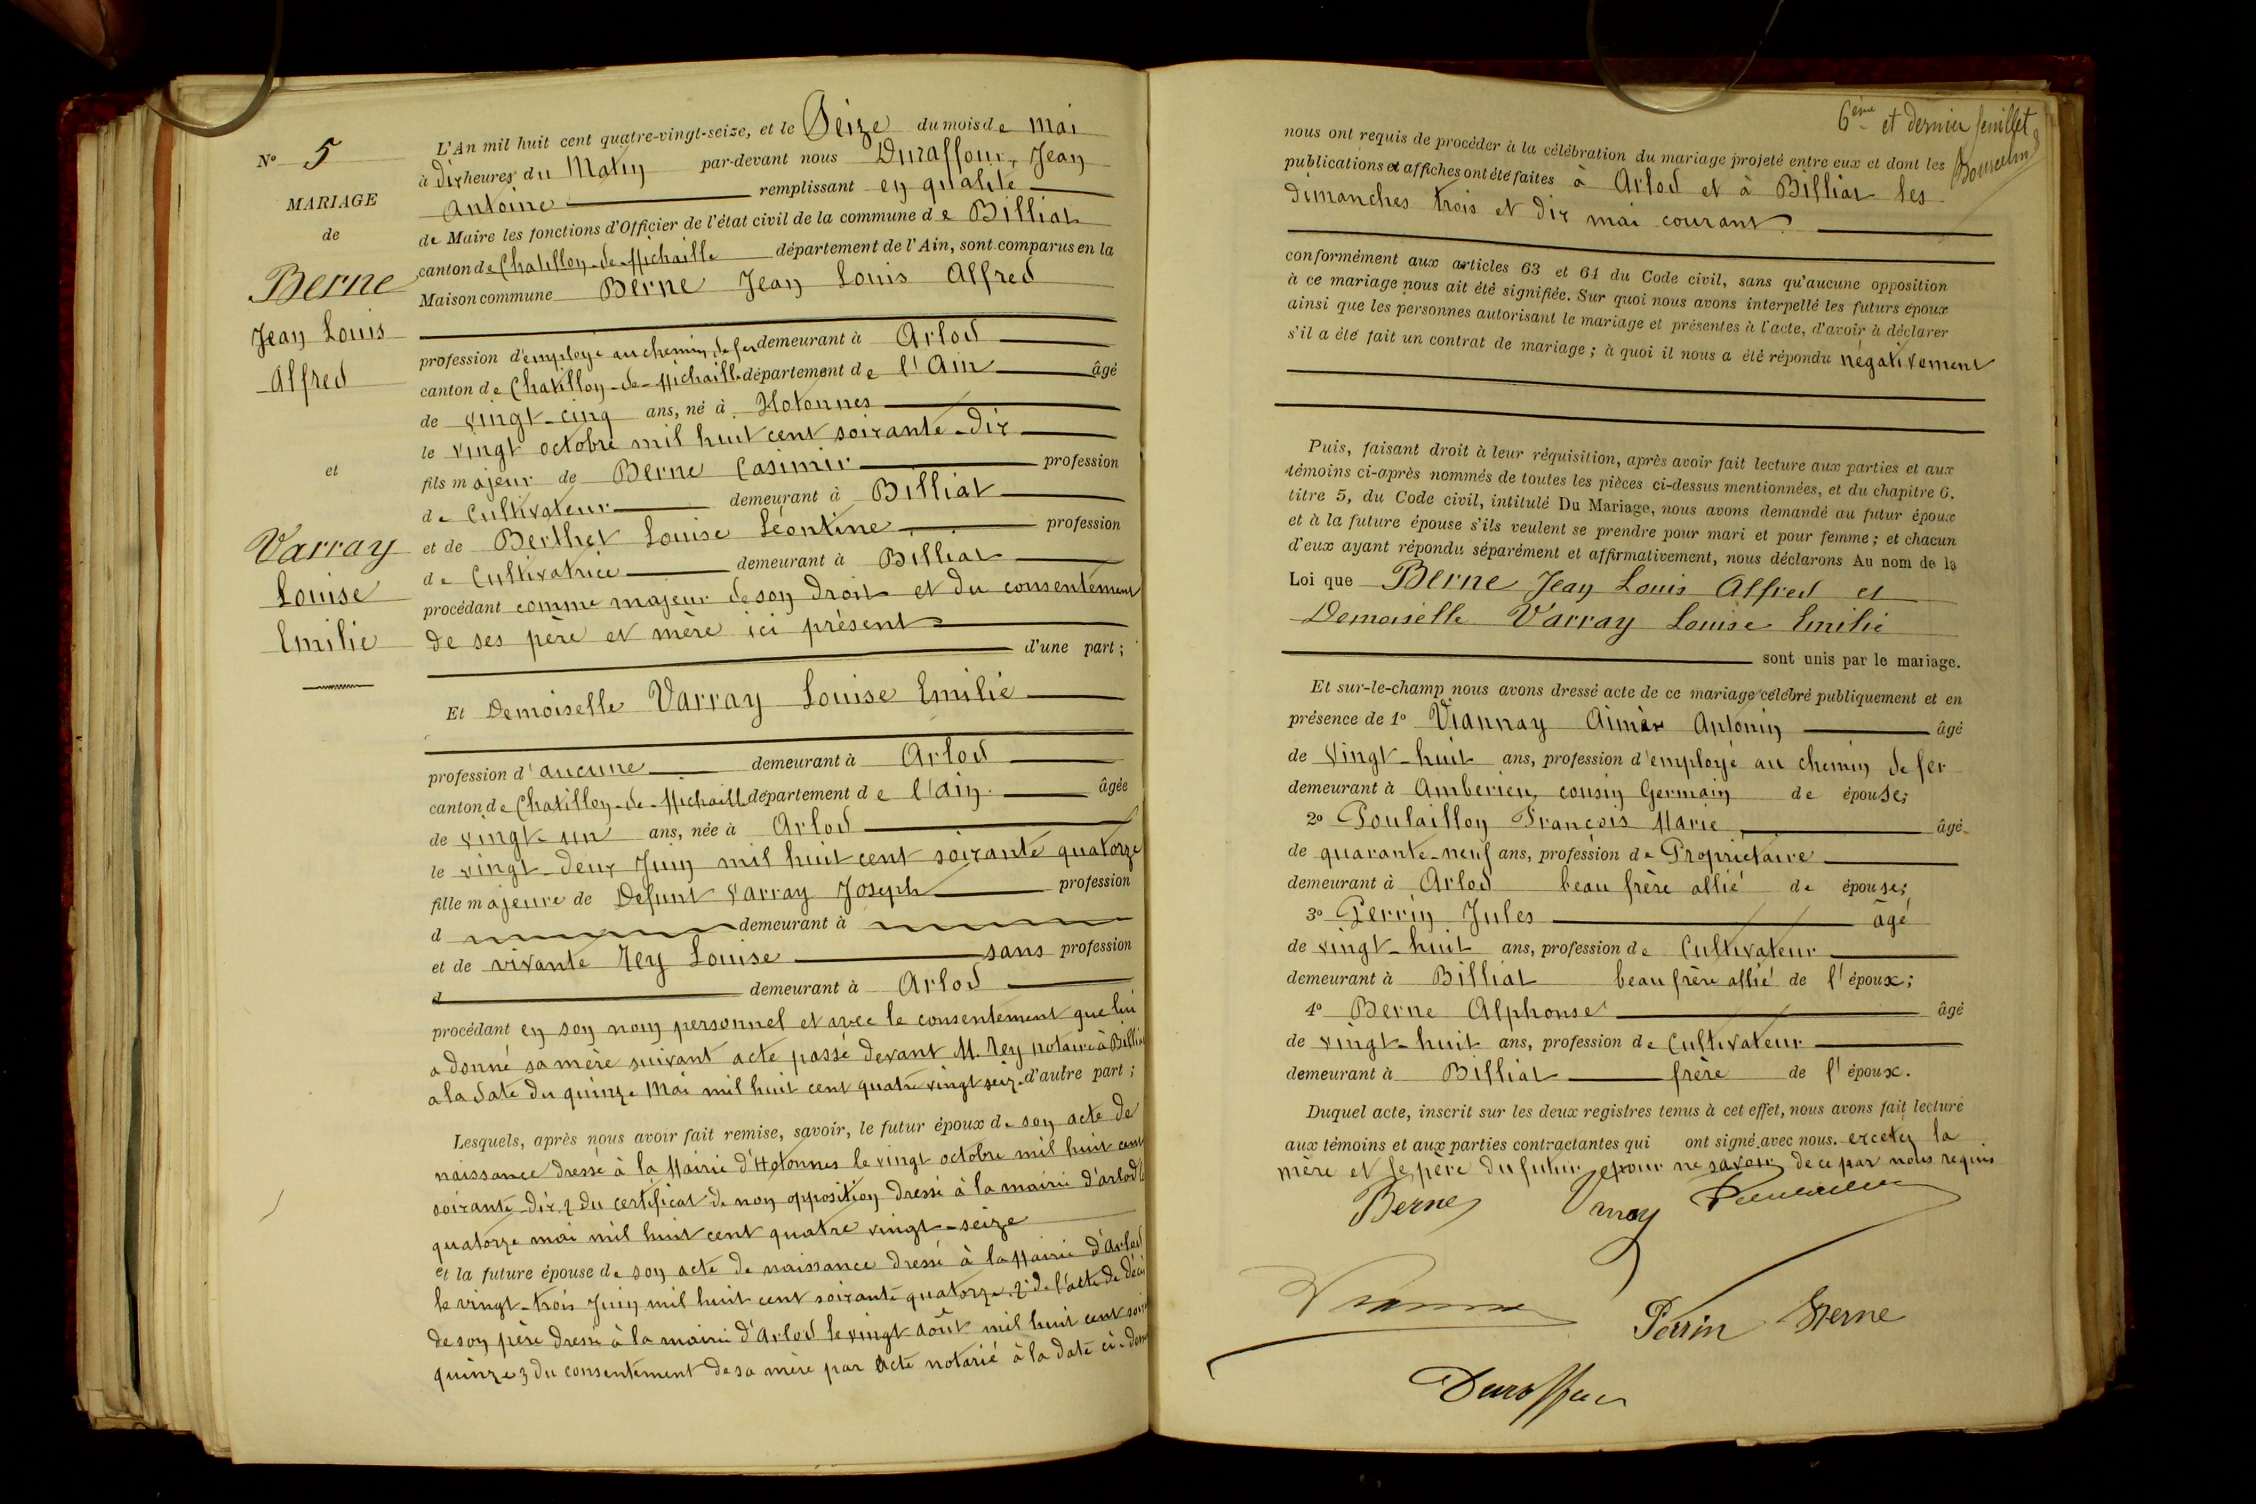 N° 5
MARIAGE
de
Berne
Jean Louis
Alfred
et
Varray
Louise
Emilie
L'An mil huit cent quatre-vingt-seize, et le Seize du mois de mai
à dix heures du Matin par-devant nous Duraffour, Jean
Antoine remplissant en qualité
de Maire les fonctions d'Officier de l'état civil de la commune de Billiat
canton de Chatillon-de-Michaille département de l'Ain, sont comparus en la
Maison commune Berne Jean Louis Alfred
profession d'employé au chemin de fer demeurant à Arlod
canton de Chatillon-de-Michaille département de l'Ain âgé
de vingt-cinq ans, né à Hotonnes
le vingt octobre mil huit cent soixante-dix
fils majeur de Berne Casimir profession
de Cultivateur demeurant à Billiat
et de Berthet Louise Léontine profession
de Cultivatrice demeurant à Billiat
procédant comme majeur de son droit et du consentement
de ses père et mère ici présent
d'une part;
Et Demoiselle Varray Louise Emilie
profession d'aucune demeurant à Arlod
canton de Chatillon-de-Michaille département de l'ain âgée
de vingt-un ans, née à Arlod
le vingt-deux Juin mil huit cent soixante quatorze
fille majeure de Defunt Varray Joseph profession
d demeurant à
et de vivante Rey Louise sans profession
d demeurant à Arlod
procédant en son nom personnel et avec le consentement que lui
a donné sa mère suivant acte passé devant M. Rey notaire à Billiat
a la date du quinze Mai mil huit cent quatre vingt seize d'autre part;
Lesquels, après nous avoir fait remise, savoir, le futur époux de son acte de
naissance dressé à la Mairie d'Hotonnes le vingt octobre mil huit cent
soixante-dix, 2 du certificat de non opposition dressé à la mairie d'arlod le
quatorze mai mil huit cent quatre vingt-seize
et la future épouse de son acte de naissance dressé à la Mairie d'Arlod
le vingt-trois Juin mil huit cent soixante quatorze, 2° de l'acte de décè
de son père dressé à la mairie d'Arlod le vingt août mil huit cent soix
quinze, 3 du consentement de sa mère par acte notarié à la date ci-
6ème et dernier feuillet
nous ont requis de procéder à la célébration du mariage projeté entre eux et dont les
publications et affiches ont été faites à Arlod et à Billiat les
dimanches trois et dix mai courant
conformément aux articles 63 et 64 du Code civil, sans qu'aucune opposition
à ce mariage nous ait été signifiée. Sur quoi nous avons interpellé les futurs époux
ainsi que les personnes autorisant le mariage et présentes à l'acte, d'avoir à déclarer
s'il a été fait un contrat de mariage; à quoi il nous a été répondu négativement
Puis, faisant droit à leur réquisition, après avoir fait lecture aux parties et aux
témoins ci-après nommés de toutes les pièces ci-dessus mentionnées, et du chapitre 6.
titre 5, du Code civil, intitulé Du Mariage, nous avons demandé au futur époux
et à la future épouse s'ils veulent se prendre pour mari et pour femme; et chacun
d'eux ayant répondu séparément et affirmativement, nous déclarons Au nom de la
Loi que Berne Jean Louis Alfred et
Demoiselle Varray Louise Emilie
sont unis par le mariage.
Et sur-le-champ nous avons dressé acte de ce mariage célébré publiquement et en
présence de 1° Viannay Aimé Antonin âgé
de vingt-huit ans, profession d'employé au chemin de fer
demeurant à Amberieu, cousin Germain de épouse;
2° Poulaillon François Marie âgé
de quarante-neuf ans, profession de Propriétaire
demeurant à Arlod beau frère allié de épouse;
3° Perrin Jules âgé
de vingt-huit ans, profession de Cultivateur
demeurant à Billiat beau frère allié de l'époux;
4° Berne Alphonse âgé
de vingt-huit ans, profession de Cultivateur
demeurant à Billiat frère de l'époux.
Duquel acte, inscrit sur les deux registres tenus à cet effet, nous avons fait lecture
aux témoins et aux parties contractantes qui ont signé avec nous. la
mère et le père du futur époux ne savoir de ce par nous requis
Berne Varray
Perrin Berne
Duraffour